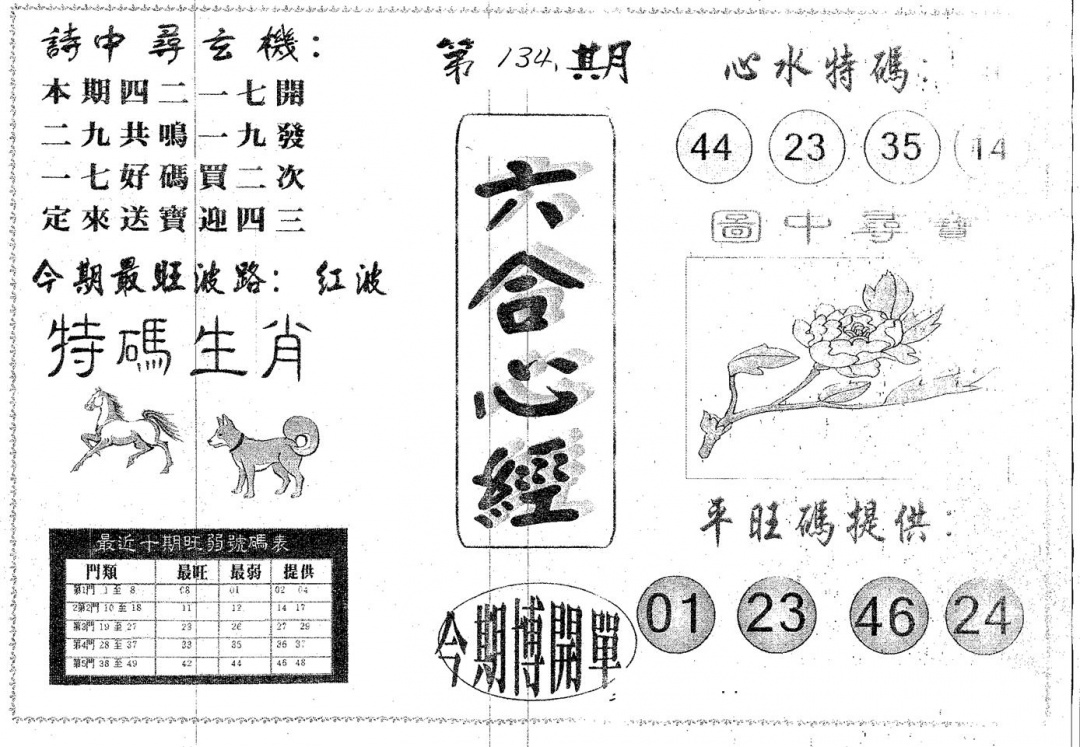 詩中尋玄機：
本期四二一七開
二九共鳴一九發
一七好碼買二次
定來送寶迎四三
今期最旺波路：红波
特碼生肖
最近十期旺弱號碼表
門類 最旺 最弱 提供
第1門 1 至 8 08 01 02 04
2第2門 10 至 18 11 12 14 17
第3門 19 至 27 23 26 27 26
第4門 28 至 37 33 35 36
第5門 38 至 49 42 44 46 48
第134,其月
六合心經
今期博開單
心水特碼：
44 23 35 14
圖中尋寶
平旺碼提供：
01 23 46 24